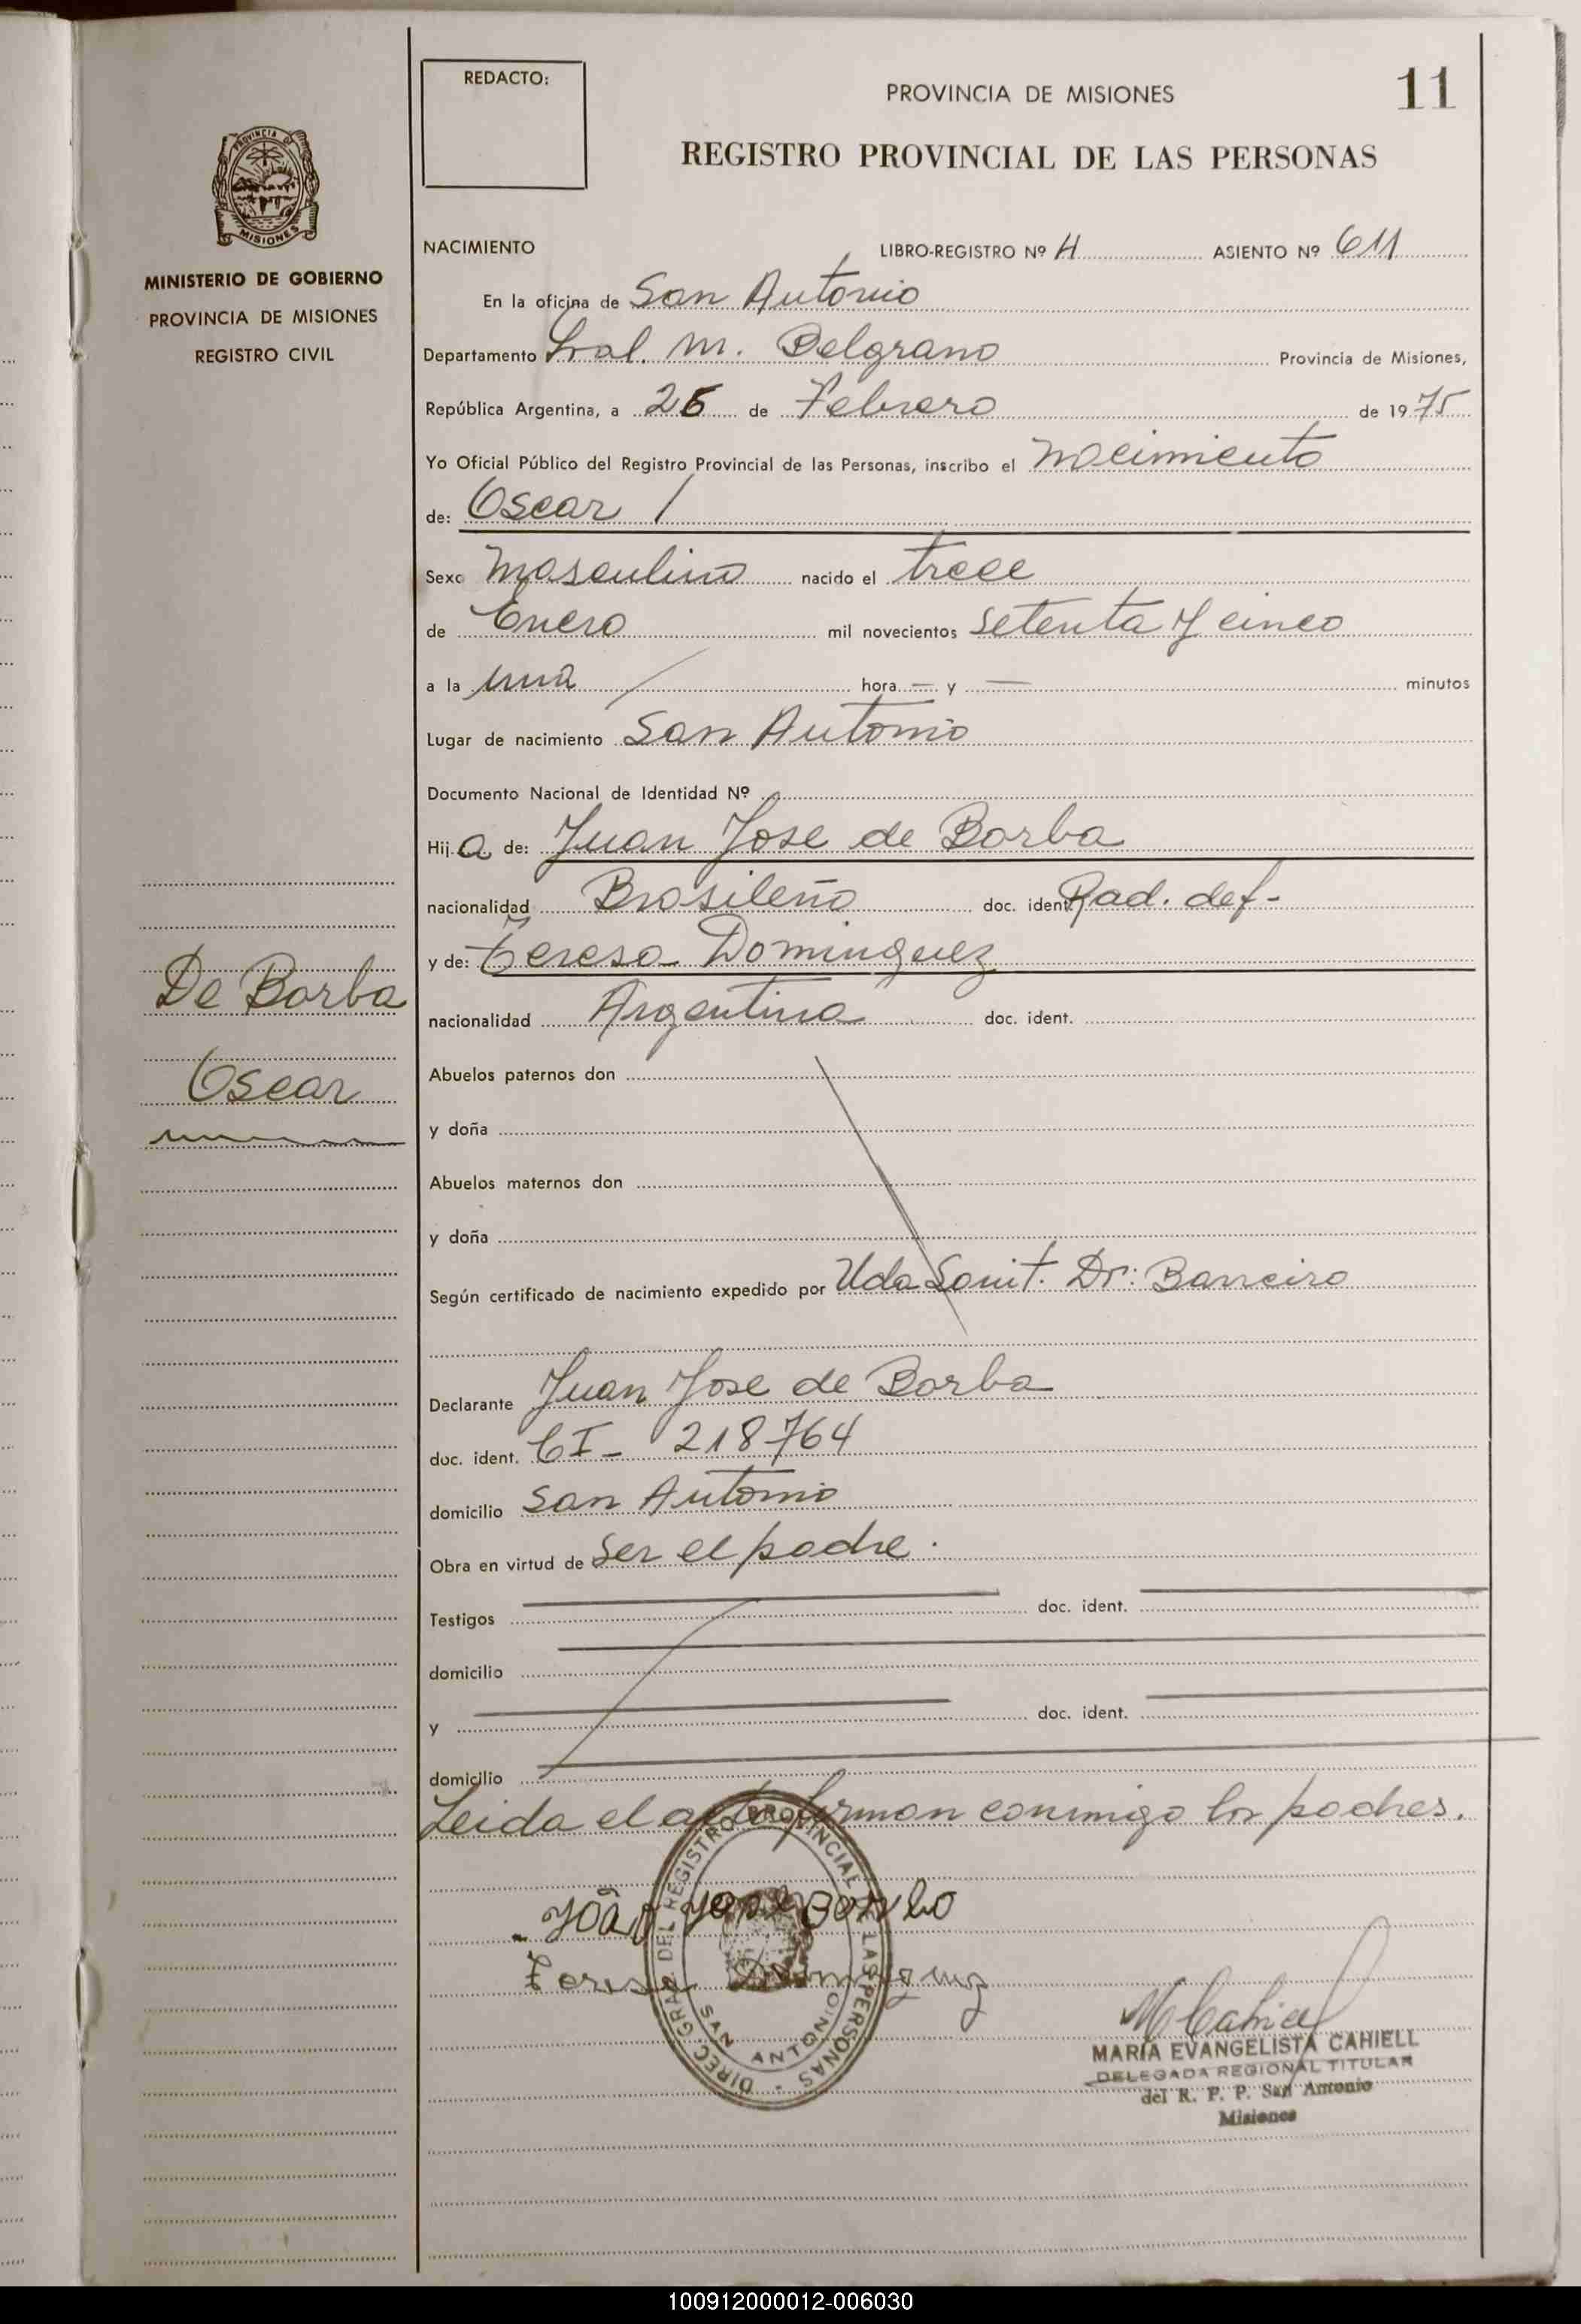 11
REDACTO:
PROVINCIA DE MISIONES
REGISTRO PROVINCIAL DE LAS PERSONAS
PROVINCIA DE
MISIONES
MINISTERIO DE GOBIERNO
PROVINCIA DE MISIONES
REGISTRO CIVIL
NACIMIENTO LIBRO-REGISTRO Nº H ASIENTO Nº 611
En la oficina de San Antonio
Departamento Gral. M. Belgrano Provincia de Misiones,
República Argentina, a 26 de Febrero de 1975
Yo Oficial Público del Registro Provincial de las Personas, inscribo el nacimiento
de: Oscar /
Sexo masculino nacido el trece
de Enero mil novecientos setenta y cinco
a la una hora — y — minutos
Lugar de nacimiento San Antonio
Documento Nacional de Identidad Nº
Hija de: Juan Jose de Borba
nacionalidad Brasileño doc. ident. Rad. def-
y de: Teresa Dominguez
nacionalidad Argentina doc. ident.
De Borba
Oscar
Abuelos paternos don
y doña
Abuelos maternos don
y doña
Según certificado de nacimiento expedido por Uda Sanit. Dr: Barreiro
Declarante Juan Jose de Borba
doc. ident. CI- 218764
domicilio San Antonio
Obra en virtud de ser el padre.
Testigos doc. ident.
domicilio
y doc. ident.
domicilio
Leida el acta firman conmigo los padres.
João Jose Borbo
Teresa Dominguez
DIREC. GRAL. DEL REGISTRO PROVINCIAL DE LAS PERSONAS
SAN ANTONIO
M Cahiell
MARIA EVANGELISTA CAHIELL
DELEGADA REGIONAL TITULAR
del R. P. P. San Antonio
Misiones
100912000012-006030